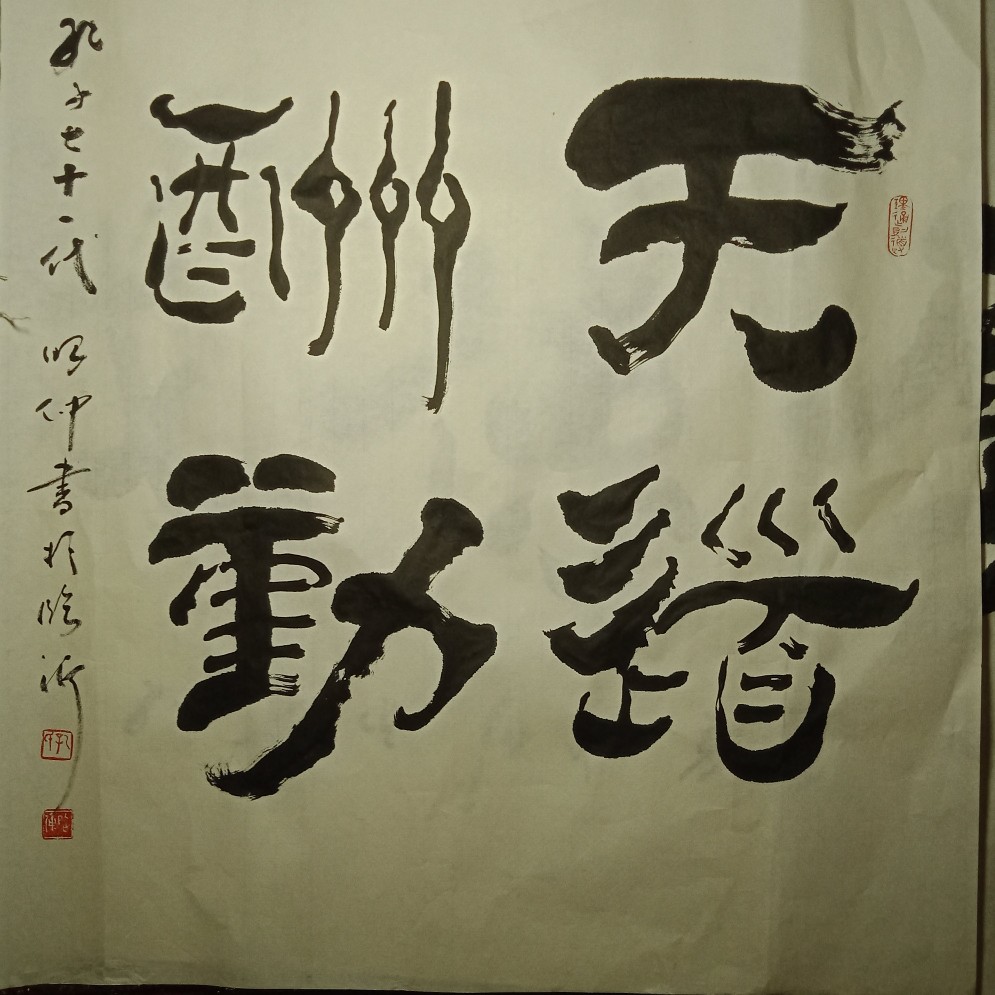 天道
酬勤
孔子七十一代 昭仲書於臨沂